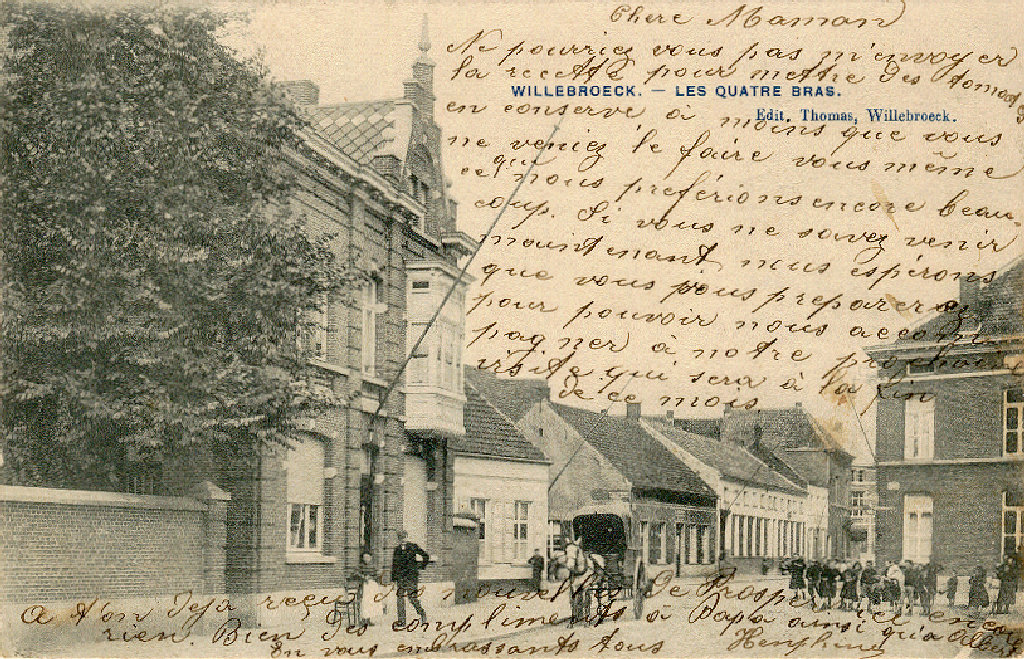 Chere Maman
Ne pourriez vous pas m'envoyer
la recette pour mettre des tomates
WILLEBROECK. — LES QUATRE BRAS.
en conserve à moins que vous
Edit. Thomas, Willebroeck.
ne veniez le faire vous même
ce que nous preférions encore beau-
coup. Si vous ne savez venir
maintenant nous espérons
que vous vous preparerez
pour pouvoir nous accom
pagner à notre prochaine
visite qui sera à la fin
de ce mois
A t'on deja reçu des nouvelles de Prosper ici encore
rien. Bien des compliments à Papa ainsi qu'a Albert
En vous embrassants tous